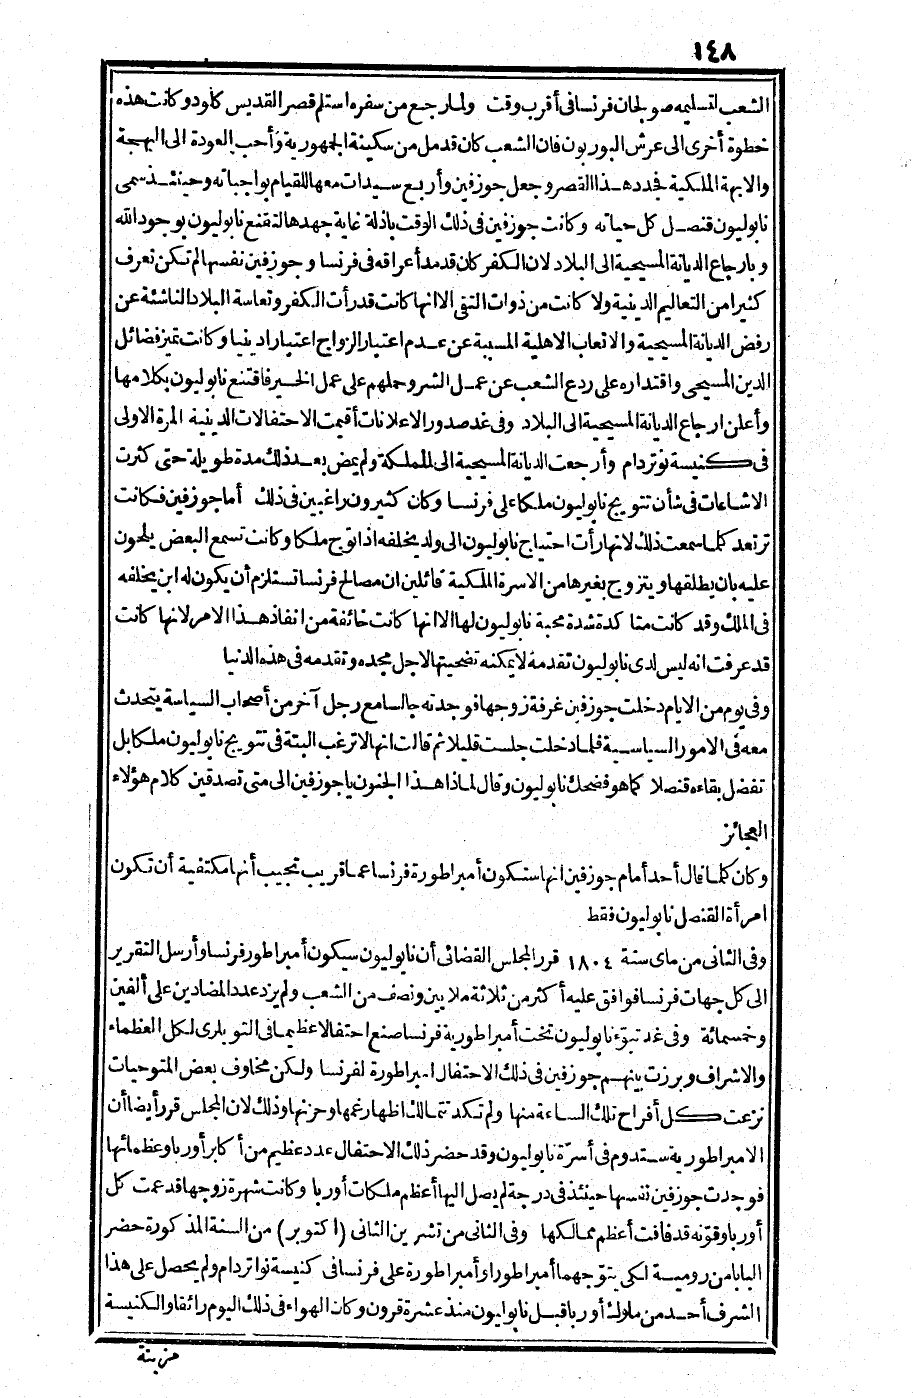 ١٤٨
الشعب لتسليمه صولجان فرنسا فى أقرب وقت ولما رجع من سفره استلم قصر القديس كلود وكانت هذه
خطوة أخرى الى عرش البوربون فان الشعب كان قد مل من سكينة الجمهورية وأحب العودة الى البهجة
والابهة الملكية فجدد هذا القصر وجعل جوزفين وأربع سيدات معها للقيام بواجباته وحينئذ سمى
نابوليون قنصل كل حياته وكانت جوزفين فى ذلك الوقت باذلة غاية جهدها لتقنع نابوليون بوجود الله
وبارجاع الديانة المسيحية الى البلاد لان الكفر كان قد مد أعراقه فى فرنسا وجوزفين نفسها لم تكن تعرف
كثيرا من التعاليم الدينية ولا كانت من ذوات التقى الا انها كانت قد رأت الكفر وتعاسة البلاد الناشئة عن
رفض الديانة المسيحية والاتعاب الاهلية المسببة عن عدم اعتبار الزواج اعتبارا دينيا وكانت تميز فضائل
الدين المسيحى واقتداره على ردع الشعب عن عمل الشر وحملهم على عمل الخير فاقتنع نابوليون بكلامها
وأعلن ارجاع الديانة المسيحية الى البلاد وفى غد صدور الاعلانات أقيمت الاحتفالات الدينية المرة الاولى
فى كنيسة نوتردام وأرجعت الديانة المسيحية الى المملكة ولم يمض بعد ذلك مدة طويلة حتى كثرت
الاشاعات فى شأن تتويج نابوليون ملكا على فرنسا وكان كثيرون راغبين فى ذلك أما جوزفين فكانت
ترتعد كلما سمعت ذلك لانها رأت احتياج نابوليون الى ولد يخلفه اذا توج ملكا وكانت تسمع البعض يلحون
عليه بان يطلقها ويتزوج بغيرها من الاسرة الملكية قائلين ان مصالح فرنسا تستلزم أن يكون له ابن يخلفه
فى الملك وقد كانت متاكدة شدة محبة نابوليون لها الا انها كانت خائفة من انفاذ هذا الامر لانها كانت
قد عرفت انه ليس لدى نابوليون تقدمة لا يمكنه تضحيتها لاجل مجده وتقدمه فى هذه الدنيا
وفى يوم من الايام دخلت جوزفين غرفة زوجها فوجدته جالسا مع رجل آخر من أصحاب السياسة يتحدث
معه فى الامور السياسية فلما دخلت جلست قليلا ثم قالت انها لا ترغب البتة فى تتويج نابوليون ملكا بل
تفضل بقاءه قنصلا كما هو فضحك نابوليون وقال لماذا هذا الجنون يا جوزفين الى متى تصدقين كلام هؤلاء
العجائز
وكان كلما قال أحد أمام جوزفين انها ستكون أمبراطورة فرنسا عما قريب تجيب أنها مكتفية أن تكون
امرأة القنصل نابوليون فقط
وفى الثانى من ماى سنة ١٨٠٤ قرر المجلس القضائى أن نابوليون سيكون أمبراطور فرنسا وأرسل التقرير
الى كل جهات فرنسا فوافق عليه أكثر من ثلاثة ملايين ونصف من الشعب ولم يزد عدد المضادين على ألفين
وخمسمائة وفى غد تبوّء نابوليون تخت أمبراطورية فرنسا صنع احتفالا عظيما فى التويلرى لكل العظماء
والاشراف وبرزت بينهم جوزفين فى ذلك الاحتفال امبراطورة لفرنسا ولكن مخاوف بعض المتوحيات
نزعت كل أفراح تلك الساعة منها ولم تكد تتمالك اظهار غمها وحزنها وذلك لان المجلس قرر أيضا أن
الامبراطورية ستدوم فى أسرّة نابوليون وقد حضر ذلك الاحتفال عدد عظيم من أكابر أوربا وعظمائها
فوجدت جوزفين نفسها حينئذ فى درجة لم يصل اليها أعظم ملكات أوربا وكانت شهرة زوجها قد عمت كل
أوربا وقوّته قد فاقت أعظم ممالكها وفى الثانى من تشرين الثانى (اكتوبر) من السنة المذكورة حضر
البابا من رومية لكى يتوّجهما أمبراطورا وأمبراطورة على فرنسا فى كنيسة نواتردام ولم يحصل على هذا
الشرف أحد من ملوك أوربا قبل نابوليون منذ عشرة قرون وكان الهواء فى ذلك اليوم رائقا والكنيسة
مزينة